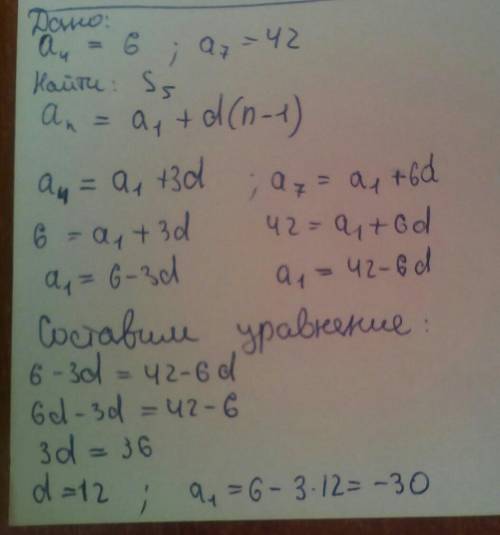 Дано:
a₄ = 6 ; a₇ = 42
Найти: S₅
aₙ = a₁ + d(n-1)
a₄ = a₁ + 3d ; a₇ = a₁ + 6d
6 = a₁ + 3d 42 = a₁ + 6d
a₁ = 6 - 3d a₁ = 42 - 6d
Составим уравнение:
6 - 3d = 42 - 6d
6d - 3d = 42 - 6
3d = 36
d = 12 ; a₁ = 6 - 3·12 = -30